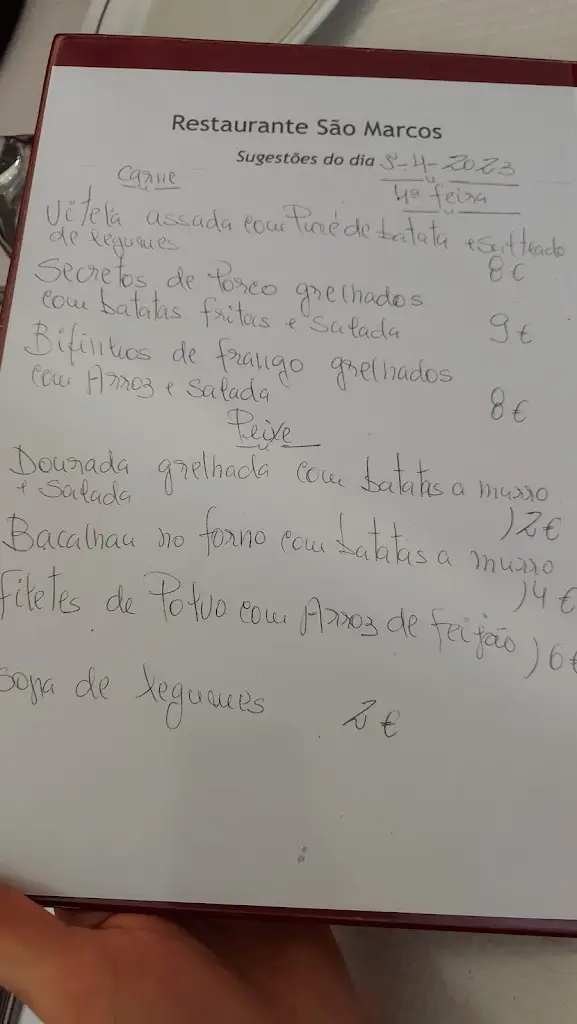 Restaurante São Marcos
Sugestões do dia 5-4-2023
4ª feira
Carne
Vitela assada com Puré de batata e salteado
de legumes
8€
Secretos de Porco grelhados
com batatas fritas e Salada
9€
Bifinhos de frango grelhados
com Arroz e Salada
8€
Peixe
Dourada grelhada com batatas a murro
+ Salada
12€
Bacalhau no forno com batatas a murro
14€
Filetes de Polvo com Arroz de feijão 16€
Sopa de legumes 2€